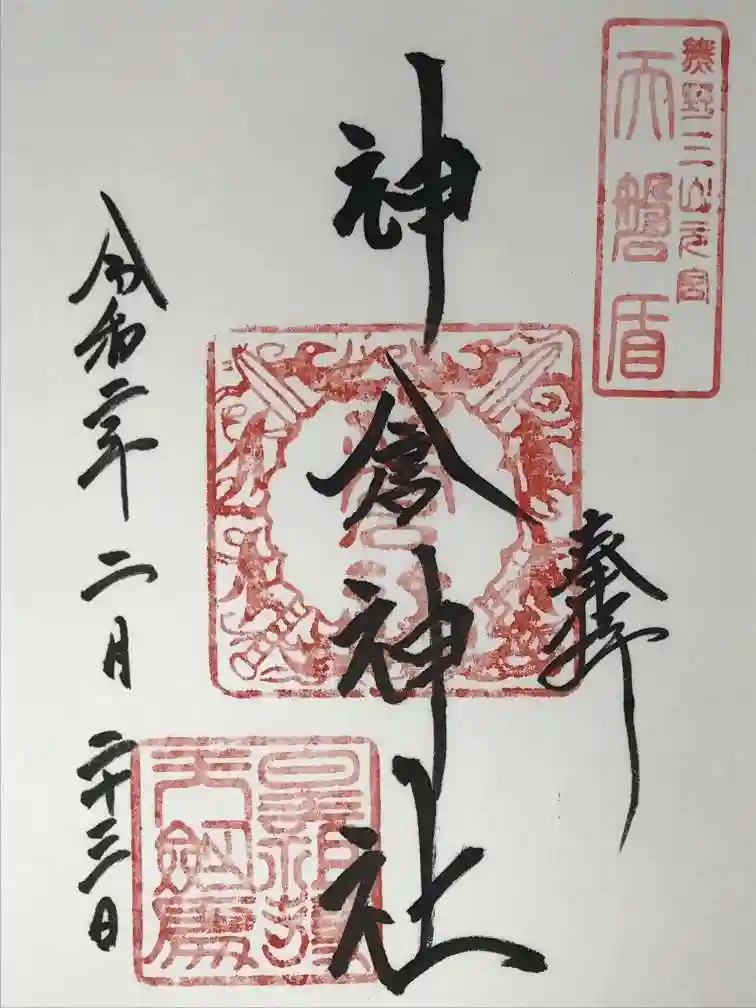 熊野三山元宮
天磐盾
奉拝
神倉神社
令和二年二月二十三日